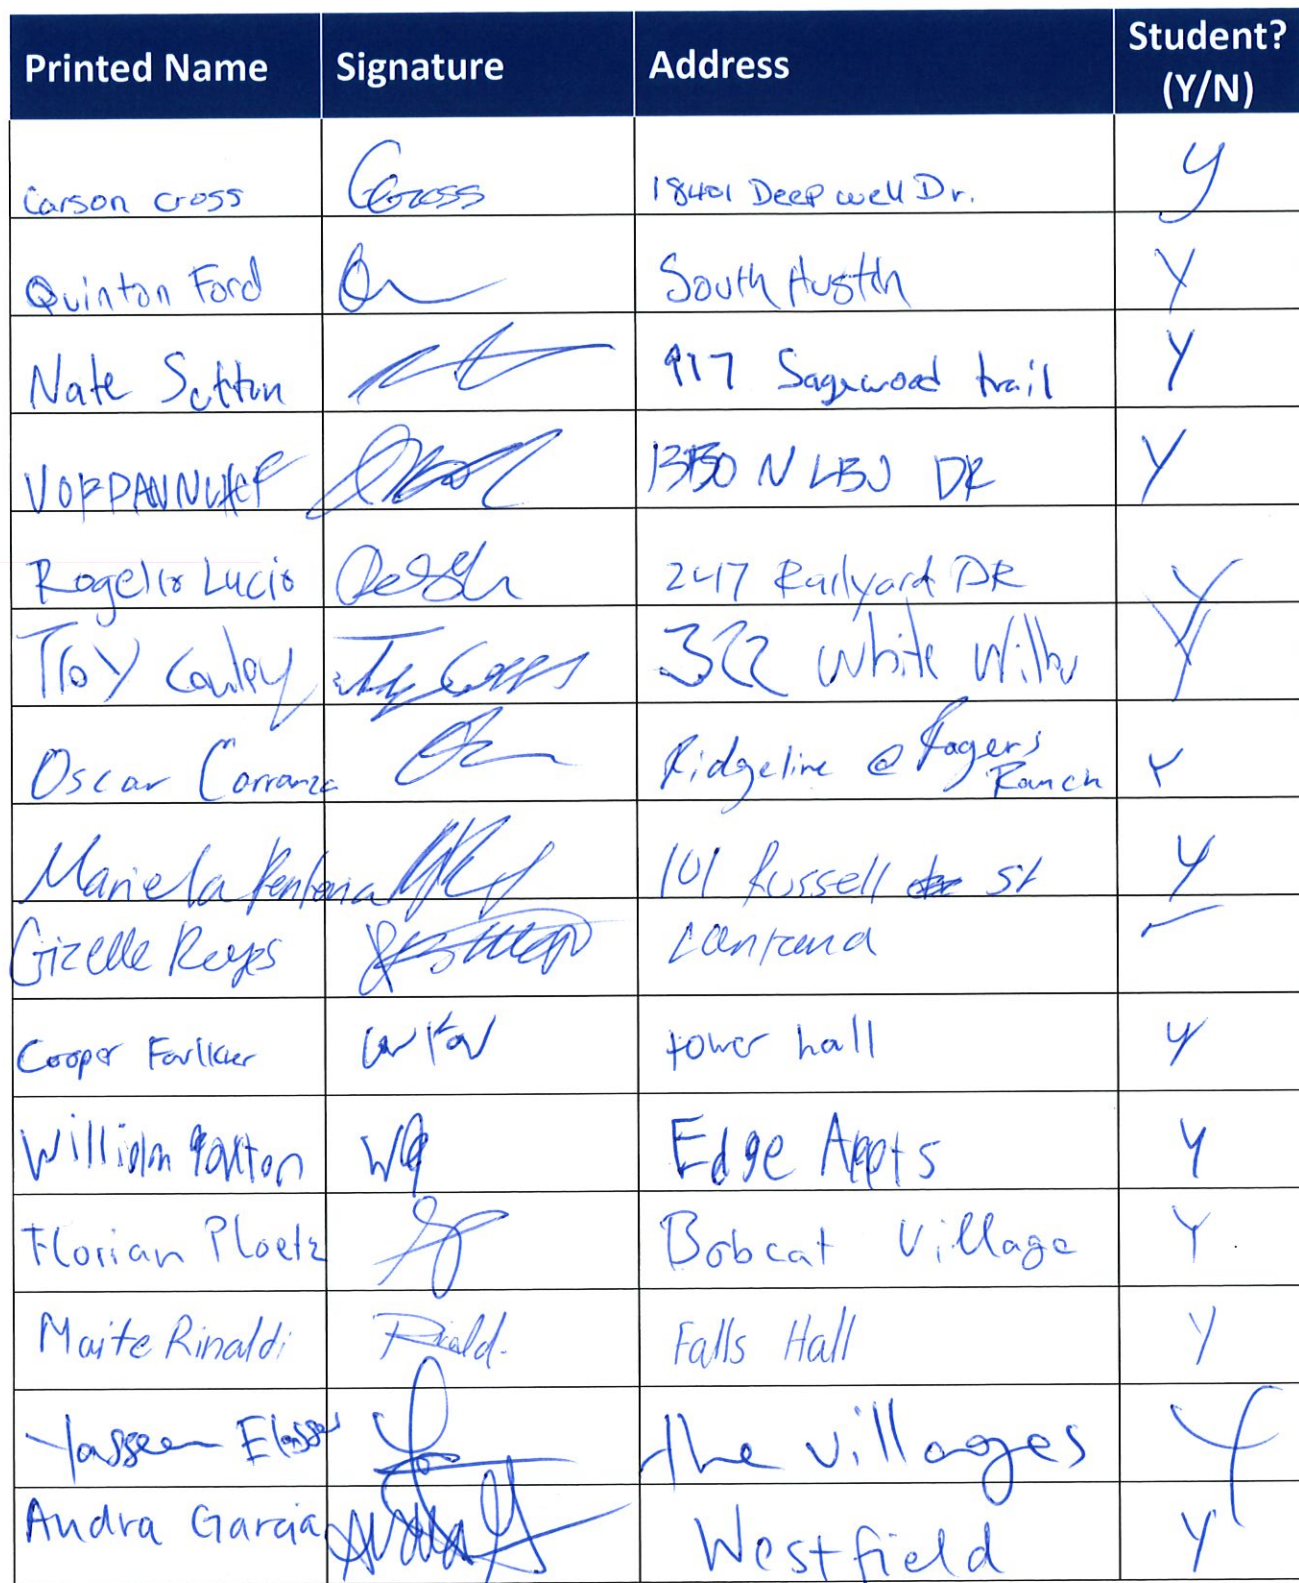 Printed Name Signature Address Student? (Y/N)
Carson Cross CCross 18401 Deep well Dr. Y
Quinton Ford South Austin Y
Nate Sutton 917 Sagewood trail Y
N LBJ DR Y
Rogelio Lucio 247 Railyard DR Y
Troy Cauley 322 White Y
Oscar Carranza Ridgeline @ Rogers Ranch Y
Mariela 101 Russell St Y
Gizelle Reyes
Cooper tower hall Y
William Edge Appts Y
Florian Ploetz Bobcat Village Y
Maite Rinaldi Falls Hall Y
Yasseen the villages Y
Andra Garcia Westfield Y